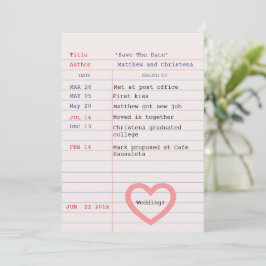 Title 'Save The Date'
Author Matthew and Christena
DATE ISSUED TO
MAR 20 Met at post office
MAY 05 First kiss
May 20 Matthew got new job
JUL 14 Moved in together
DEC 13 Christena graduated
college
FEB 14 Mark proposed at Cafe
Suamaleta
JUN 22 201x Wedding!